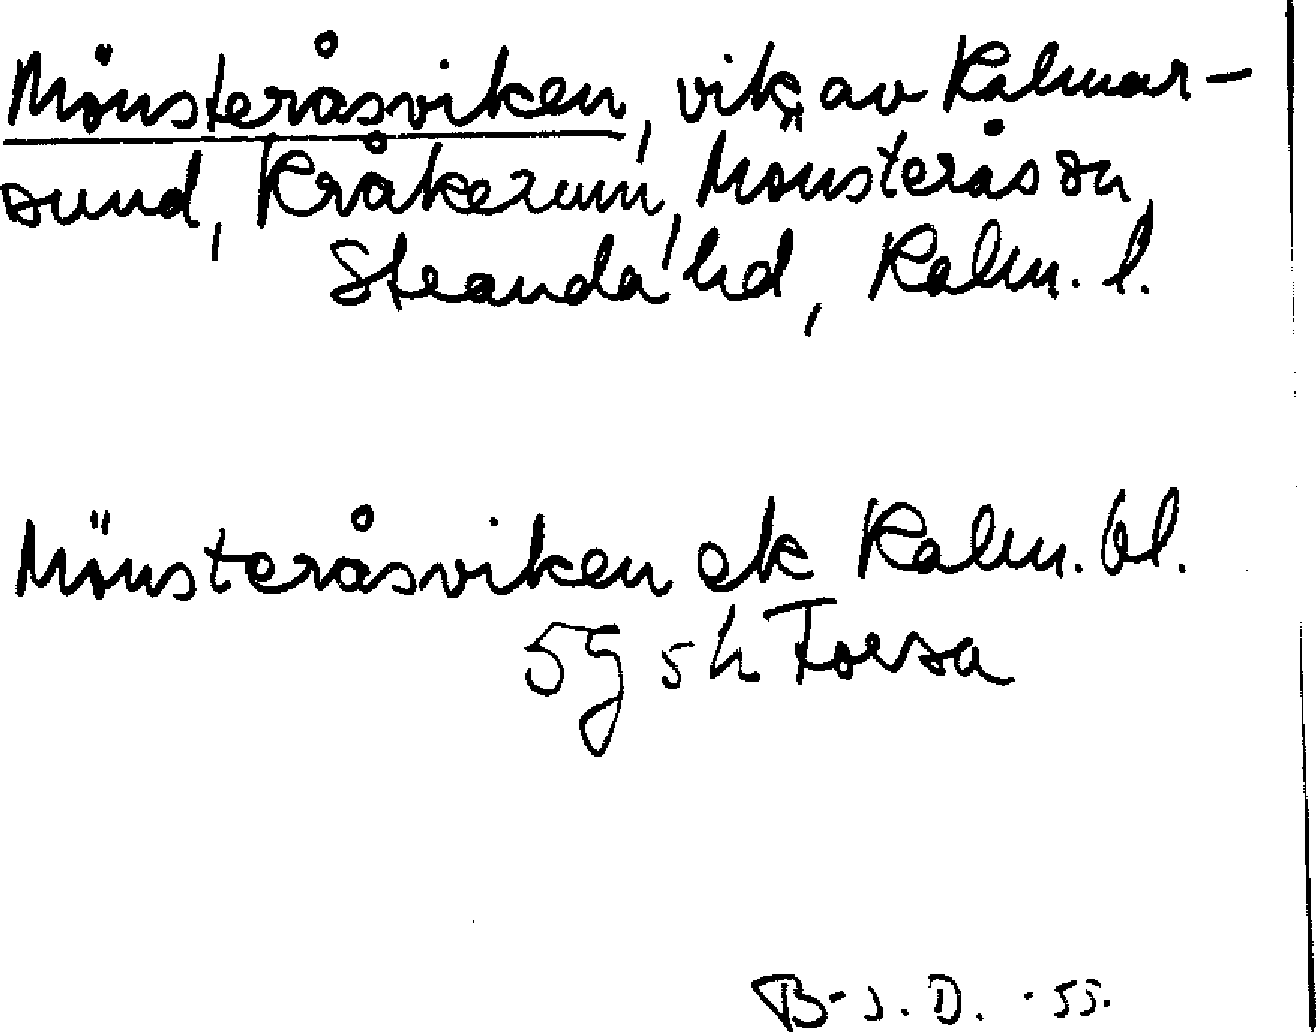 Mönsteråsviken, vik av Kalmar-
sund, Kråkerum, Mönsterås sn,
Stranda hd, Kalm. l.
Mönsteråsviken ek Kalm. bl.
5g sh Torsa
B-J.D. -55.